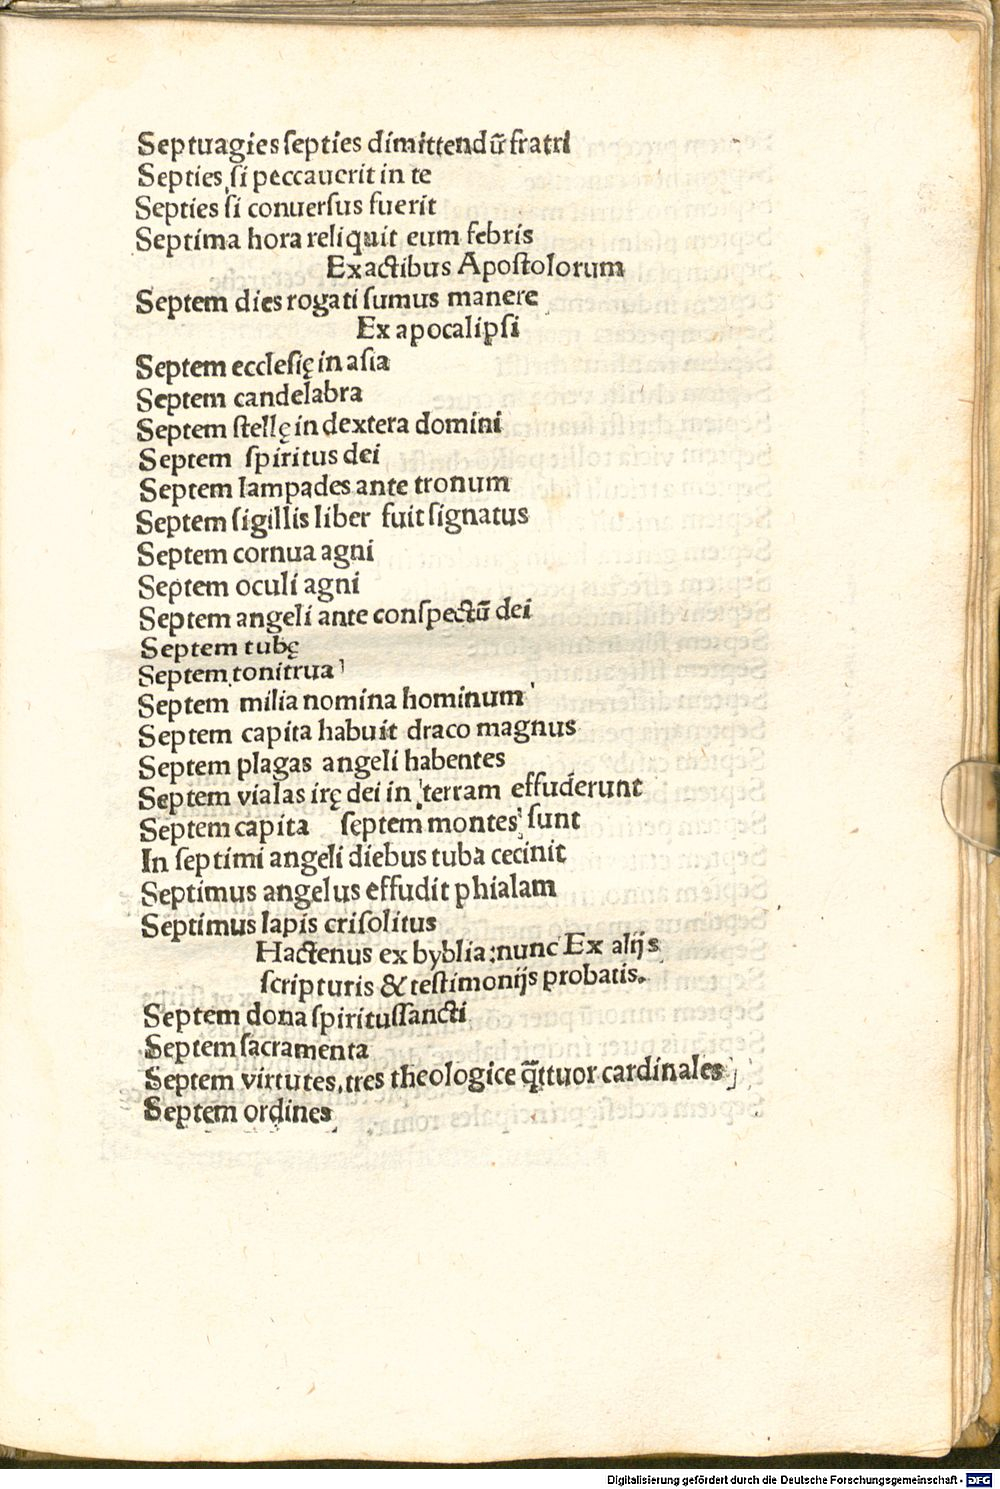 Septuagies ſepties dimittendū fratri
Septies ſi peccauerit in te
Septies ſi conuerſus fuerit
Septima hora reliquit eum febris
Ex actibus Apoſtolorum
Septem dies rogati ſumus manere
Ex apocalipſi
Septem eccleſię in aſia
Septem candelabra
Septem ſtellę in dextera domini
Septem ſpiritus dei
Septem lampades ante tronum
Septem ſigillis liber fuit ſignatus
Septem cornua agni
Septem oculi agni
Septem angeli ante conſpectū dei
Septem tubę
Septem tonitrua
Septem milia nomina hominum
Septem capita habuit draco magnus
Septem plagas angeli habentes
Septem vialas irę dei in terram effuderunt
Septem capita ſeptem montes ſunt
In ſeptimi angeli diebus tuba cecinit
Septimus angelus effudit phialam
Septimus lapis criſolitus
Hactenus ex byblia: nunc Ex alijs
ſcripturis & teſtimonijs probatis.
Septem dona ſpirituſſancti
Septem ſacramenta
Septem virtutes, tres theologice q̄ttuor cardinales
Septem ordines
Digitalisierung gefördert durch die Deutsche Forschungsgemeinschaft - DFG